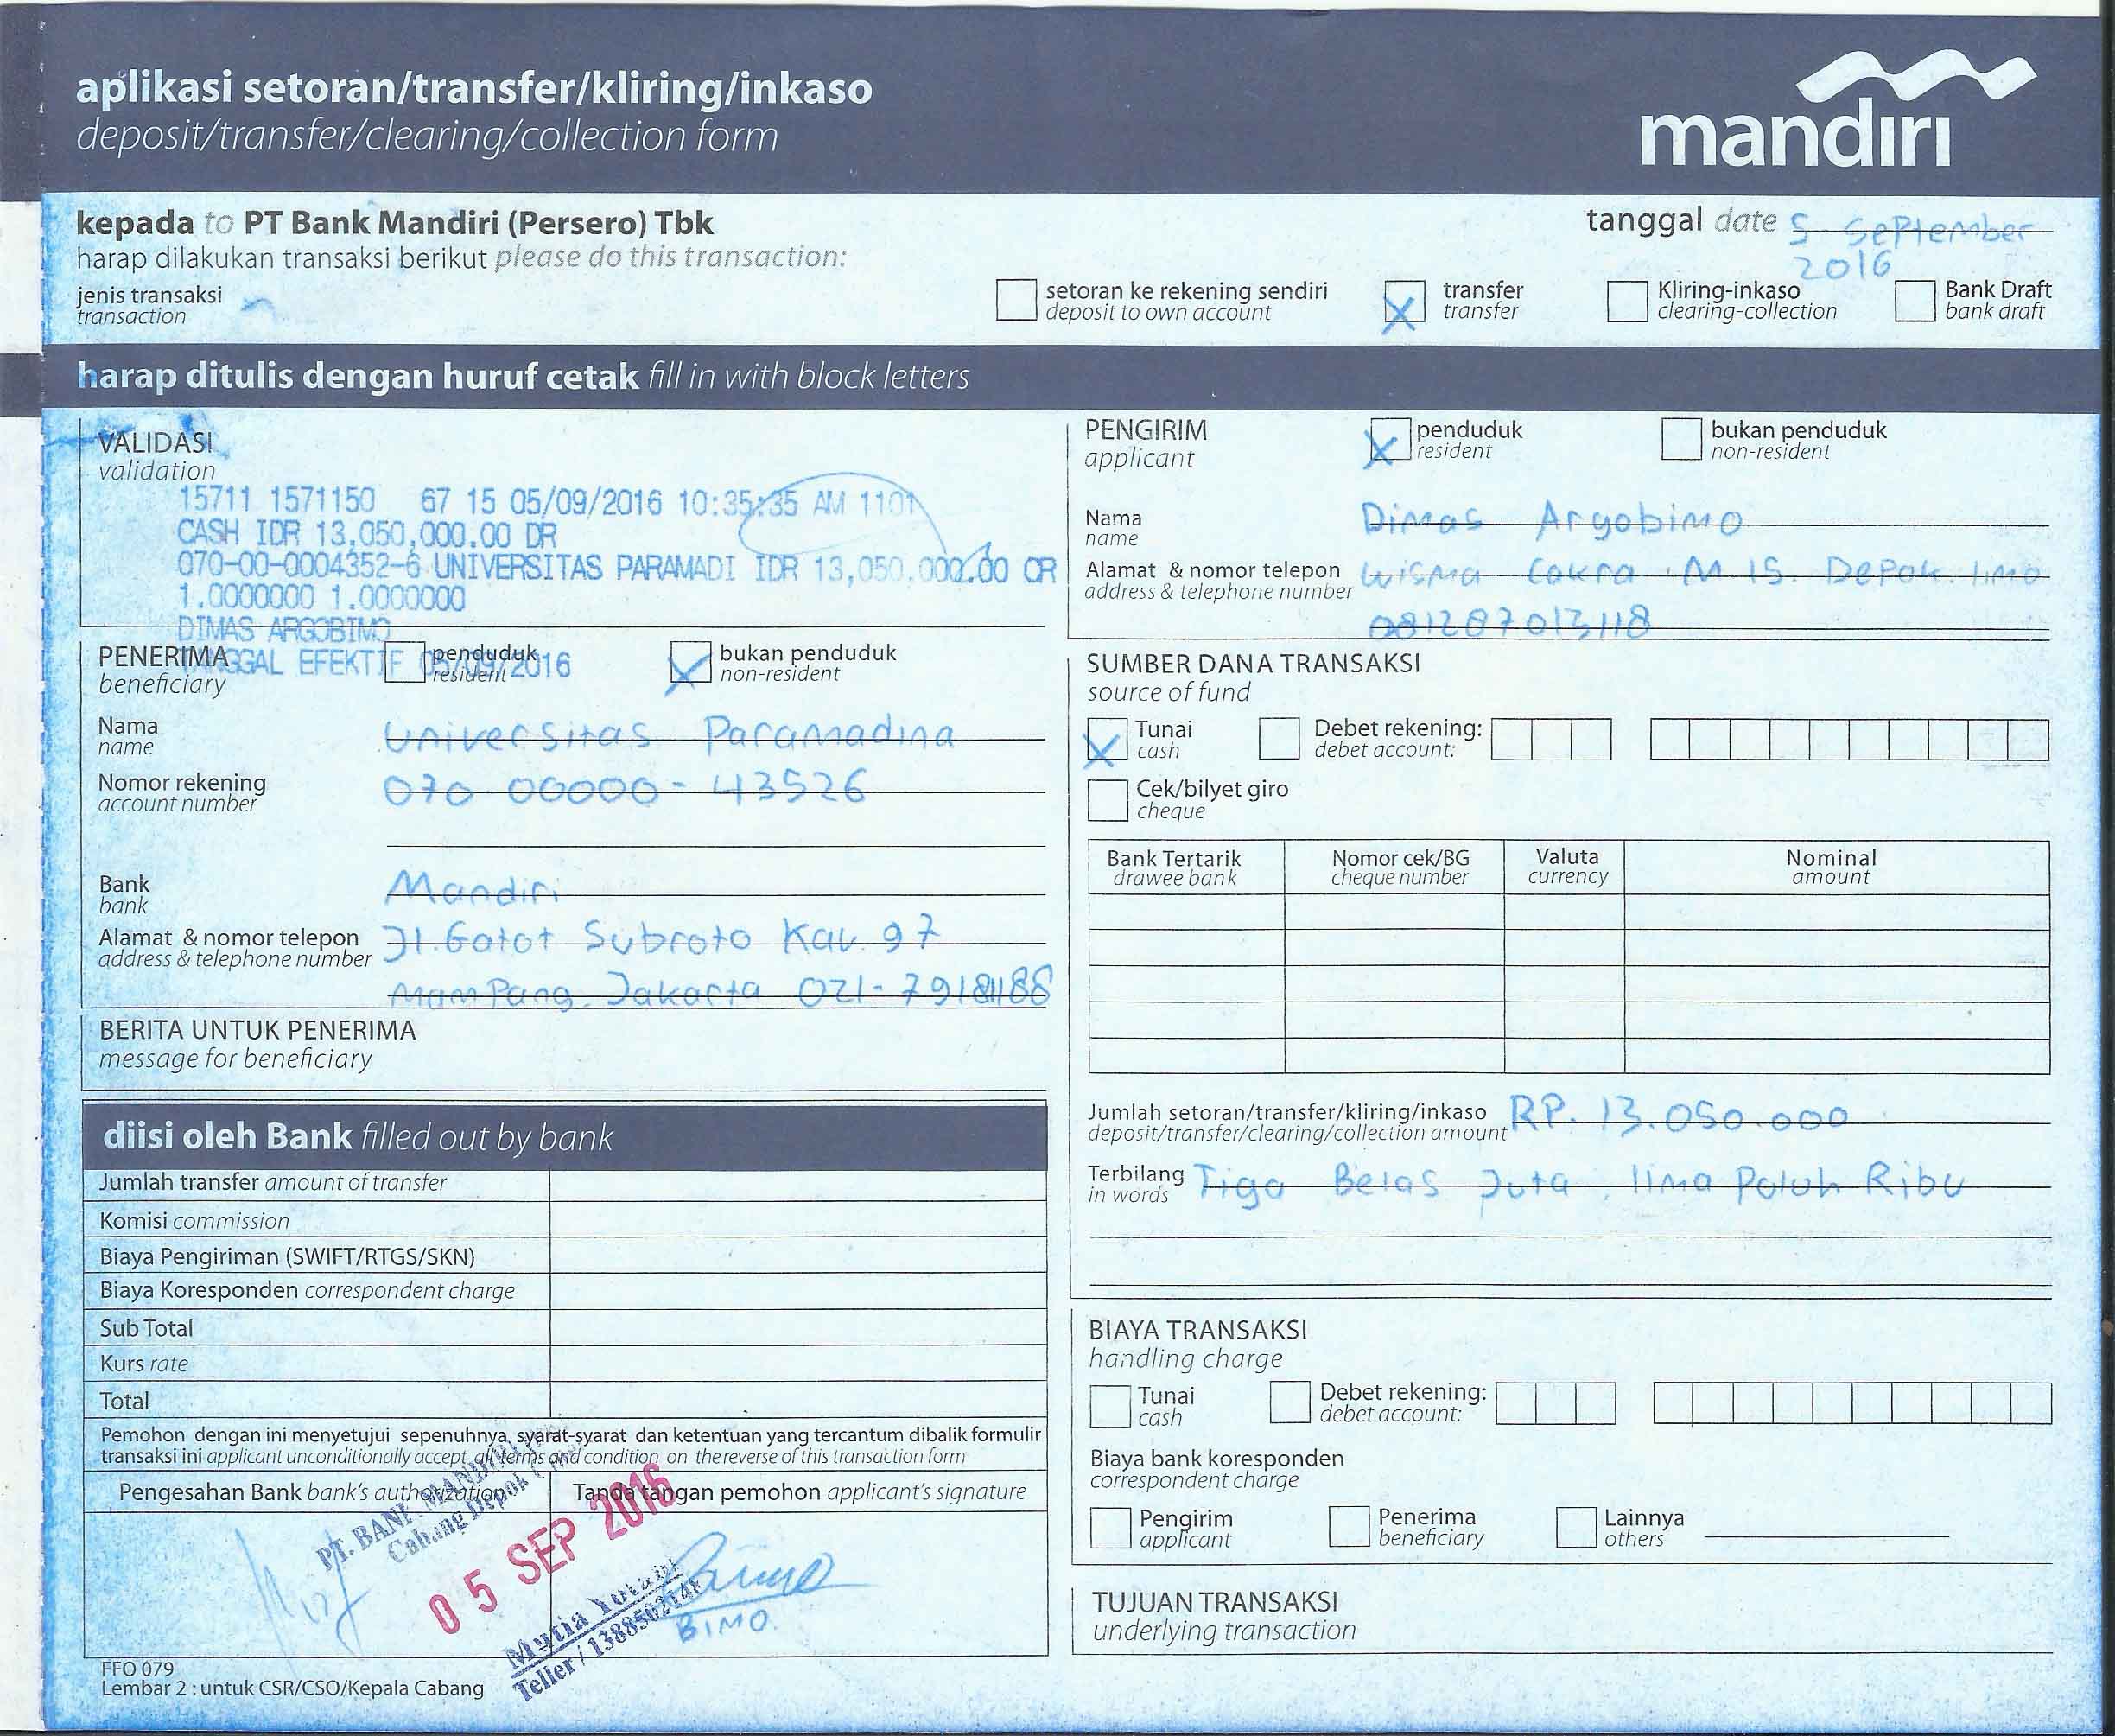 aplikasi setoran/transfer/kliring/inkaso
deposit/transfer/clearing/collection form
mandiri
kepada to PT Bank Mandiri (Persero) Tbk
tanggal date 5 September 2016
harap dilakukan transaksi berikut please do this transaction:
jenis transaksi
transaction
setoran ke rekening sendiri
deposit to own account
X transfer
transfer
Kliring-inkaso
clearing-collection
Bank Draft
bank draft
harap ditulis dengan huruf cetak fill in with block letters
VALIDASI
validation
15711 1571150 67 15 05/09/2016 10:35:35 AM 1101
CASH IDR 13,050,000.00 DR
070-00-0004352-6 UNIVERSITAS PARAMADI IDR 13,050,000.00 CR
1.0000000 1.0000000
DIMAS ARGOBIMO
TANGGAL EFEKTIF 05/09/2016
PENERIMA
beneficiary
penduduk
resident
X bukan penduduk
non-resident
Nama
name
Universitas Paramadina
Nomor rekening
account number
070 00000-43526
Bank
bank
Mandiri
Alamat & nomor telepon
address & telephone number
Jl. Gatot Subroto Kav. 97
MamPang. Jakarta 021-
BERITA UNTUK PENERIMA
message for beneficiary
diisi oleh Bank filled out by bank
Jumlah transfer amount of transfer
Komisi commission
Biaya Pengiriman (SWIFT/RTGS/SKN)
Biaya Koresponden correspondent charge
Sub Total
Kurs rate
Total
Pemohon dengan ini menyetujui sepenuhnya syarat-syarat dan ketentuan yang tercantum dibalik formulir
transaksi ini applicant unconditionally accept all terms and condition on the reverse of this transaction form
Pengesahan Bank bank's authorization
Tanda tangan pemohon applicant's signature
PT. BANK MANDIRI
Cabang Depok
05 SEP 2016
Mutia
Teller /
BIMO
FFO 079
Lembar 2 : untuk CSR/CSO/Kepala Cabang
PENGIRIM
applicant
X penduduk
resident
bukan penduduk
non-resident
Nama
name
Dimas Argobimo
Alamat & nomor telepon
address & telephone number
Wisma Cakra. M 15. Depok. limo
081287013118
SUMBER DANA TRANSAKSI
source of fund
X Tunai
cash
Debet rekening:
debet account:
Cek/bilyet giro
cheque
Bank Tertarik
drawee bank
Nomor cek/BG
cheque number
Valuta
currency
Nominal
amount
Jumlah setoran/transfer/kliring/inkaso
deposit/transfer/clearing/collection amount
RP. 13.050.000
Terbilang
in words
Tiga Belas Juta, lima Puluh Ribu
BIAYA TRANSAKSI
handling charge
Tunai
cash
Debet rekening:
debet account:
Biaya bank koresponden
correspondent charge
Pengirim
applicant
Penerima
beneficiary
Lainnya
others
TUJUAN TRANSAKSI
underlying transaction